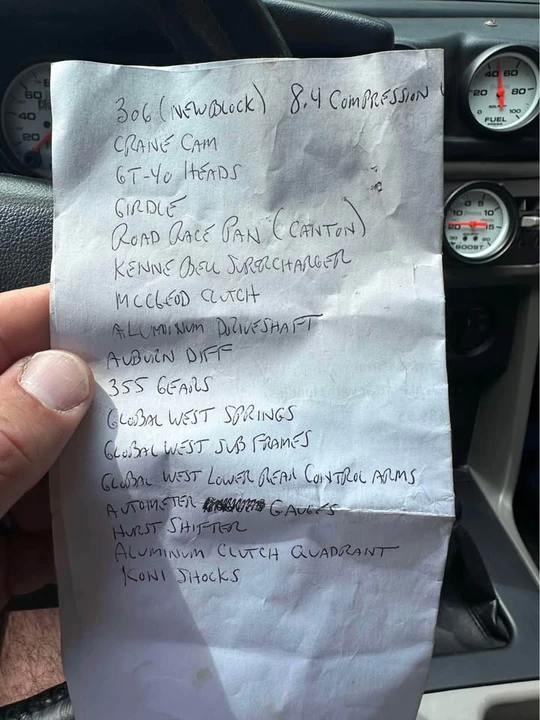 306 (NEW BLOCK) 8.4 COMPRESSION
CRANE CAM
GT-40 HEADS
GIRDLE
ROAD RACE PAN (CANTON)
KENNE BELL SUPERCHARGER
MCCLEOD CLUTCH
ALUMINUM DRIVESHAFT
AUBURN DIFF
355 GEARS
GLOBAL WEST SPRINGS
GLOBAL WEST SUB FRAMES
GLOBAL WEST LOWER REAR CONTROL ARMS
AUTOMETER GAUGES
HURST SHIFTER
ALUMINUM CLUTCH QUADRANT
KONI SHOCKS
60
40
20
40 60
20 80
0 100
FUEL
PRESS.
0 5
10 10
20 15
30 20
BOOST